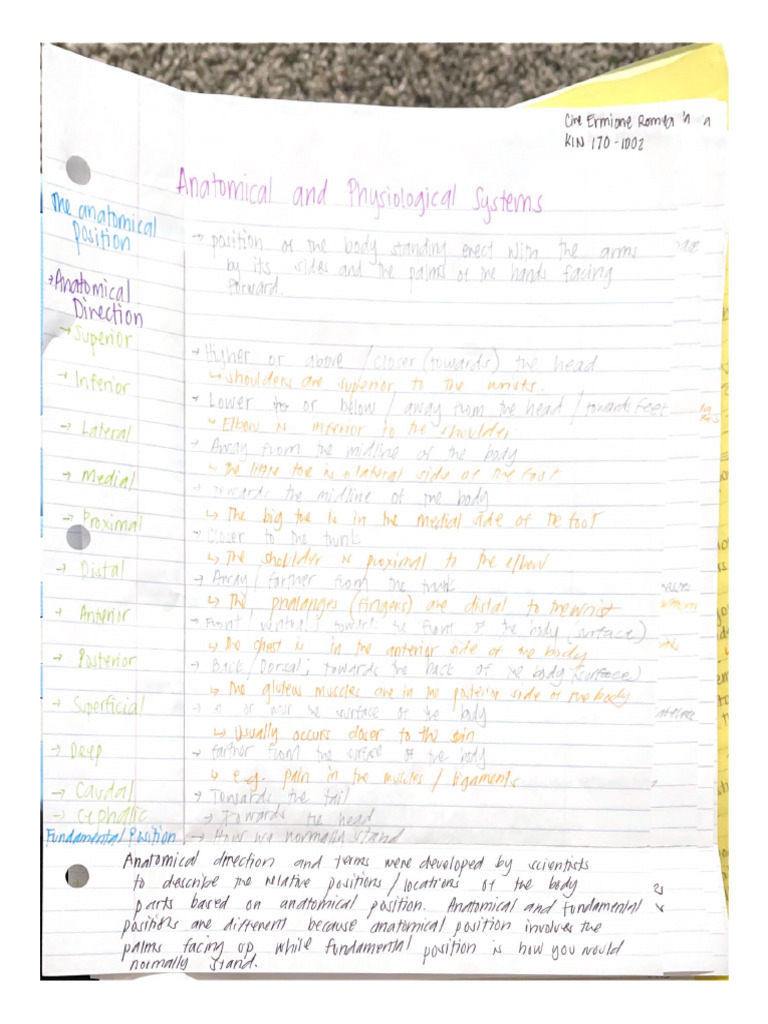 KIN 170-1002
Anatomical and Physiological Systems
The anatomical position
→ position of the body standing erect with the arms
by its sides and the palms of the hands facing
forward.
→ Anatomical Direction
→ Superior
→ Higher or above / closer (towards) the head
↳ shoulders are superior to the wrists.
→ Inferior
→ Lower to or below / away from the head / towards feet
↳ Elbow is inferior to the shoulder
→ Lateral
→ Away from the midline of the body
↳ The little toe is lateral side of the foot
→ Medial
→ Towards the midline of the body
↳ The big toe is in the medial side of the foot
→ Proximal
→ Closer to the trunk
↳ The shoulder is proximal to the elbow
→ Distal
→ Away / farther from the trunk
↳ The phalanges (fingers) are distal to the wrist
→ Anterior
→ Front, ventral; toward the front of the body (surface)
↳ The chest is in the anterior side of the body
→ Posterior
→ Back / Dorsal; towards the back of the body (surface)
↳ The gluteus muscles are in the posterior side of the body
→ Superficial
→ in or near the surface of the body
↳ Usually occurs closer to the skin
→ Deep
→ farther from the surface of the body
↳ e.g. pain in the muscles / ligaments
→ Caudal
→ Towards the tail
→ Cephalic
→ Towards the head
Fundamental Position
→ How we normally stand
Anatomical direction and terms were developed by scientists
to describe the relative positions / locations of the body
parts based on anatomical position. Anatomical and fundamental
positions are different because anatomical position involves the
palms facing up while fundamental position is how you would
normally stand.